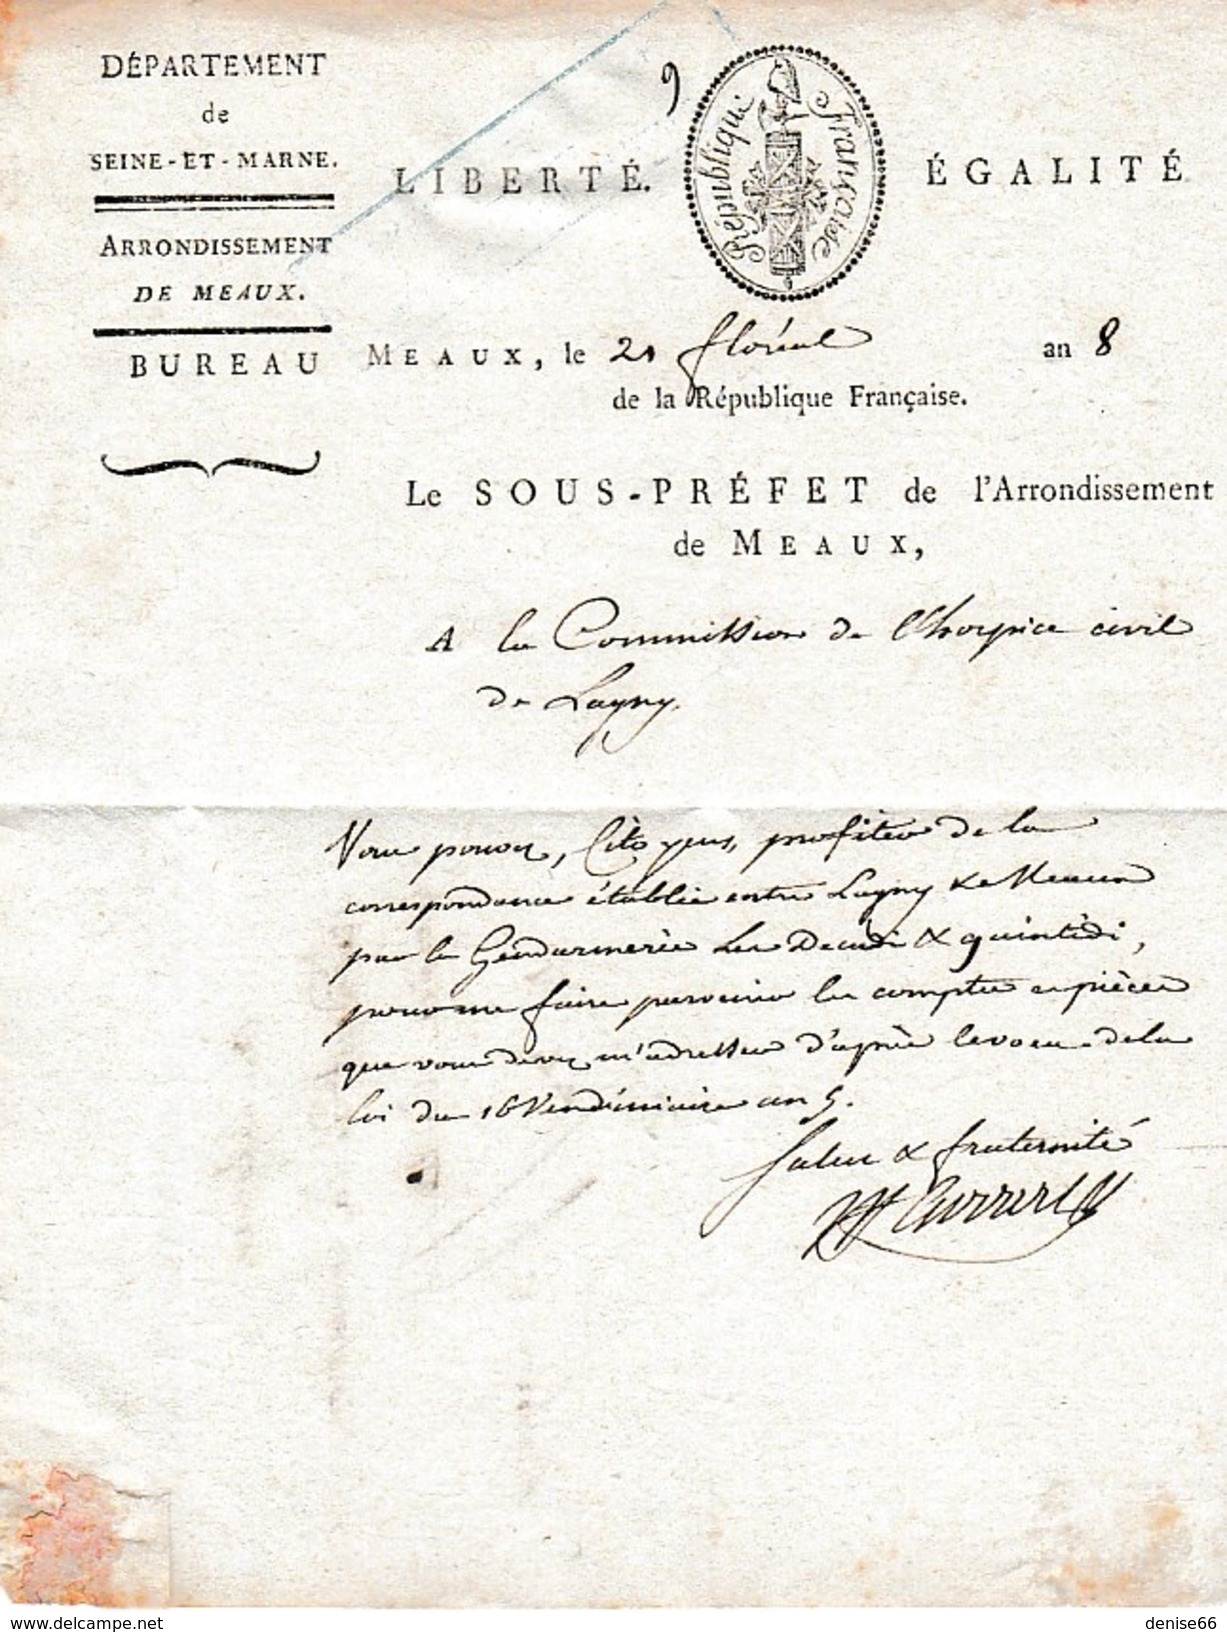 DÉPARTEMENT
de
SEINE-ET-MARNE.
ARRONDISSEMENT
DE MEAUX.
BUREAU
9
LIBERTÉ.
République Française
ÉGALITÉ
MEAUX, le 21 floréal an 8
de la République Française.
Le SOUS-PRÉFET de l'Arrondissement
de MEAUX,
A la Commission de l'hospice civil
de Lagny.
Vous pouvez, Citoyens, profiter de la
correspondance établie entre Lagny & Meaux
par la Gendarmerie les Decadi & quintidi,
pour me faire parvenir les comptes et pièces
que vous devez m'adresser d'après le voeu de la
loi du 16 Vendémiaire an 5.
Salut & fraternité
denise66 delcampe.net